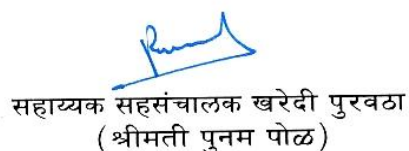 सहाय्यक सहसंचालक खरेदी पुरवठा
( श्रीमती पुनम पोळ)